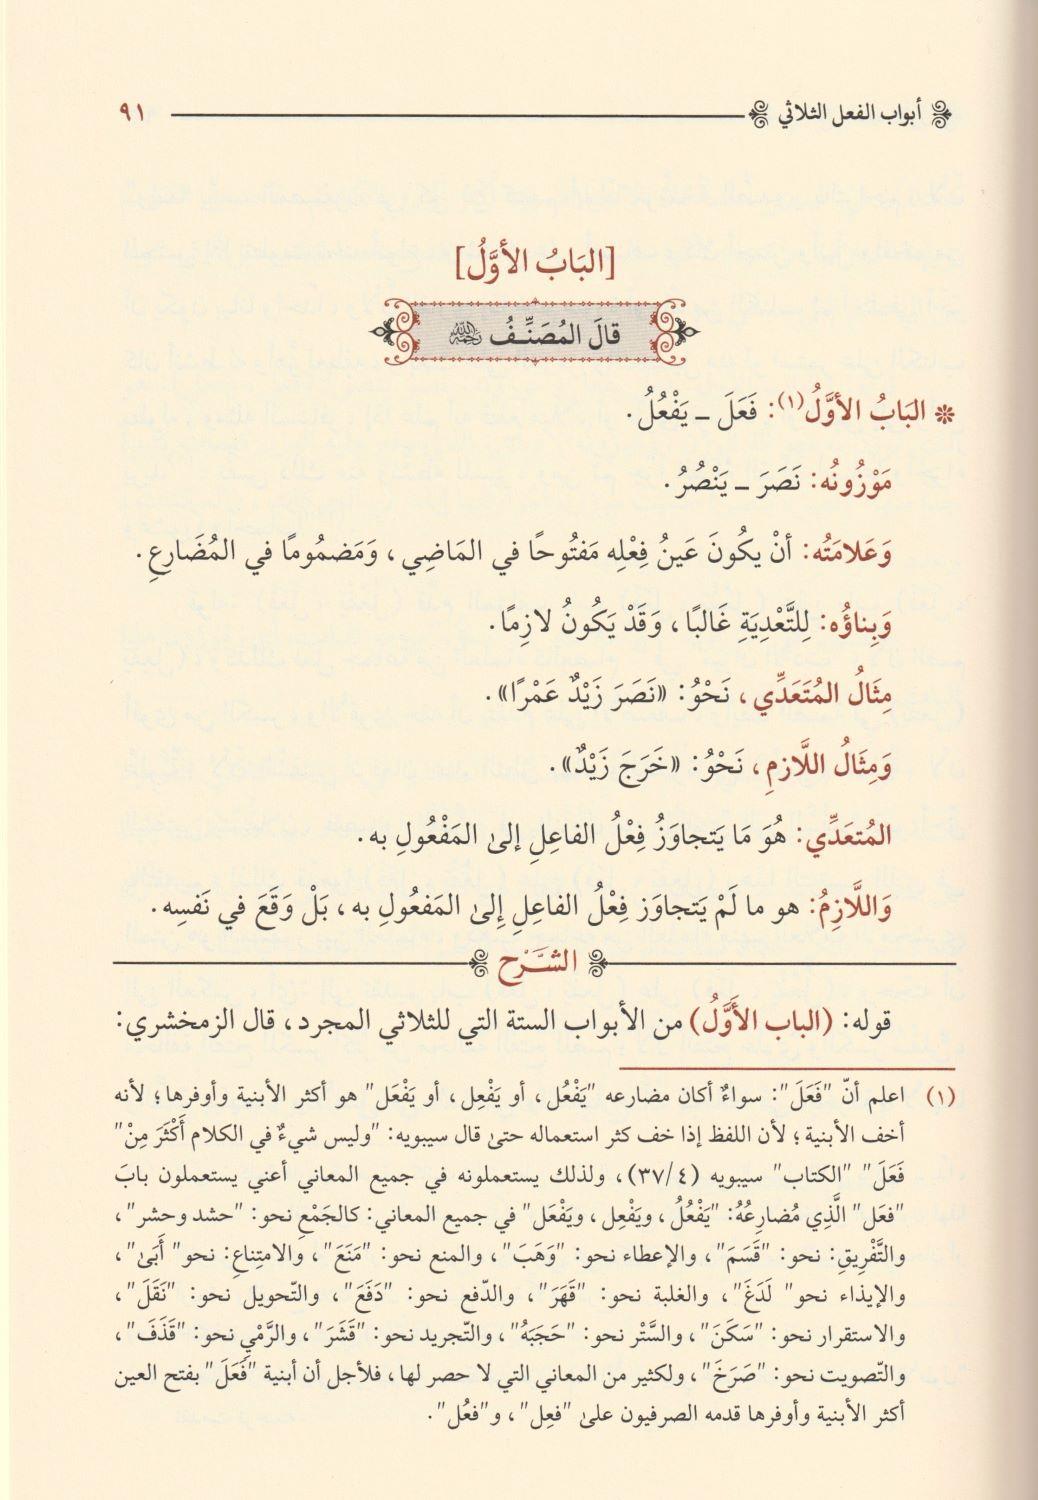 أبواب الفعل الثلاثي ٩١
[البَابُ الأوَّلُ]
قالَ المُصَنِّفُ رحمه الله
* البَابُ الأوَّلُ(١): فَعَلَ ـ يَفْعُلُ.
مَوْزُونُه: نَصَرَ ـ يَنْصُرُ.
وَعَلامَتُه: أنْ يكُونَ عَينُ فِعْلِه مَفتُوحًا في المَاضِي، وَمَضمُومًا في المُضَارِعِ.
وَبِناؤُه: لِلتَّعْدِيَةِ غَالبًا، وَقَدْ يَكُونُ لازِمًا.
مِثَالُ المُتَعَدِّي، نَحْوُ: «نَصَرَ زَيْدٌ عَمْرًا».
وَمِثَالُ اللَّازمِ، نَحْوُ: «خَرَجَ زَيْدٌ».
المُتعَدِّي: هُوَ مَا يَتجاوَزُ فِعْلُ الفاعِلِ إلىٰ المَفْعُولِ به.
وَاللَّازِمُ: هو ما لَمْ يَتجاوَز فِعْلُ الفاعِلِ إِلىٰ المَفعُولِ به، بَلْ وَقَعَ في نَفسِه.
الشَّرْح
قوله: (الباب الأَوَّلُ) من الأبواب الستة التي للثلاثي المجرد، قال الزمخشري:
(١) اعلم أنّ "فَعَلَ": سواءٌ أكان مضارعه "يَفْعُل، أو يَفْعِل، أو يَفْعَل" هو أكثر الأبنية وأوفرها؛ لأنه
أخف الأبنية؛ لأن اللفظ إذا خف كثر استعماله حتىٰ قال سيبويه: "وليس شيءٌ في الكلام أَكْثَرَ مِنْ
فَعَلَ" "الكتاب" سيبويه (٤/ ٣٧)، ولذلك يستعملونه في جميع المعاني أعني يستعملون بابَ
"فعَل" الَّذِي مُضارِعُهُ: "يَفْعُلُ، ويَفْعِل، ويَفْعَل" في جميع المعاني: كالجَمْعِ نحو: "حشد وحشر"،
والتَّفْرِيقِ: نحو: "قَسَمَ"، والإعطاء نحو: "وَهَبَ"، والمنع نحو: "مَنَعَ"، والامتِناعِ: نحو" أَبَىٰ"،
والإيذاء نحو" لَدَغَ"، والغلبة نحو: "قَهَرَ"، والدّفع نحو: "دَفَعَ"، والتّحويل نحو: "نَقَلَ"،
والاستقرار نحو: "سَكَنَ"، والسَّتْر نحو: "حَجَبَهُ"، والتّجريد نحو: "قَشَرَ"، والرَّمْي نحو: "قَذَفَ"،
والتّصويت نحو: "صَرَخَ"، ولكثير من المعاني التي لا حصر لها، فلأجل أن أبنية "فَعَلَ" بفتح العين
أكثر الأبنية وأوفرها قدمه الصرفيون علىٰ "فعِل"، و"فعُل".